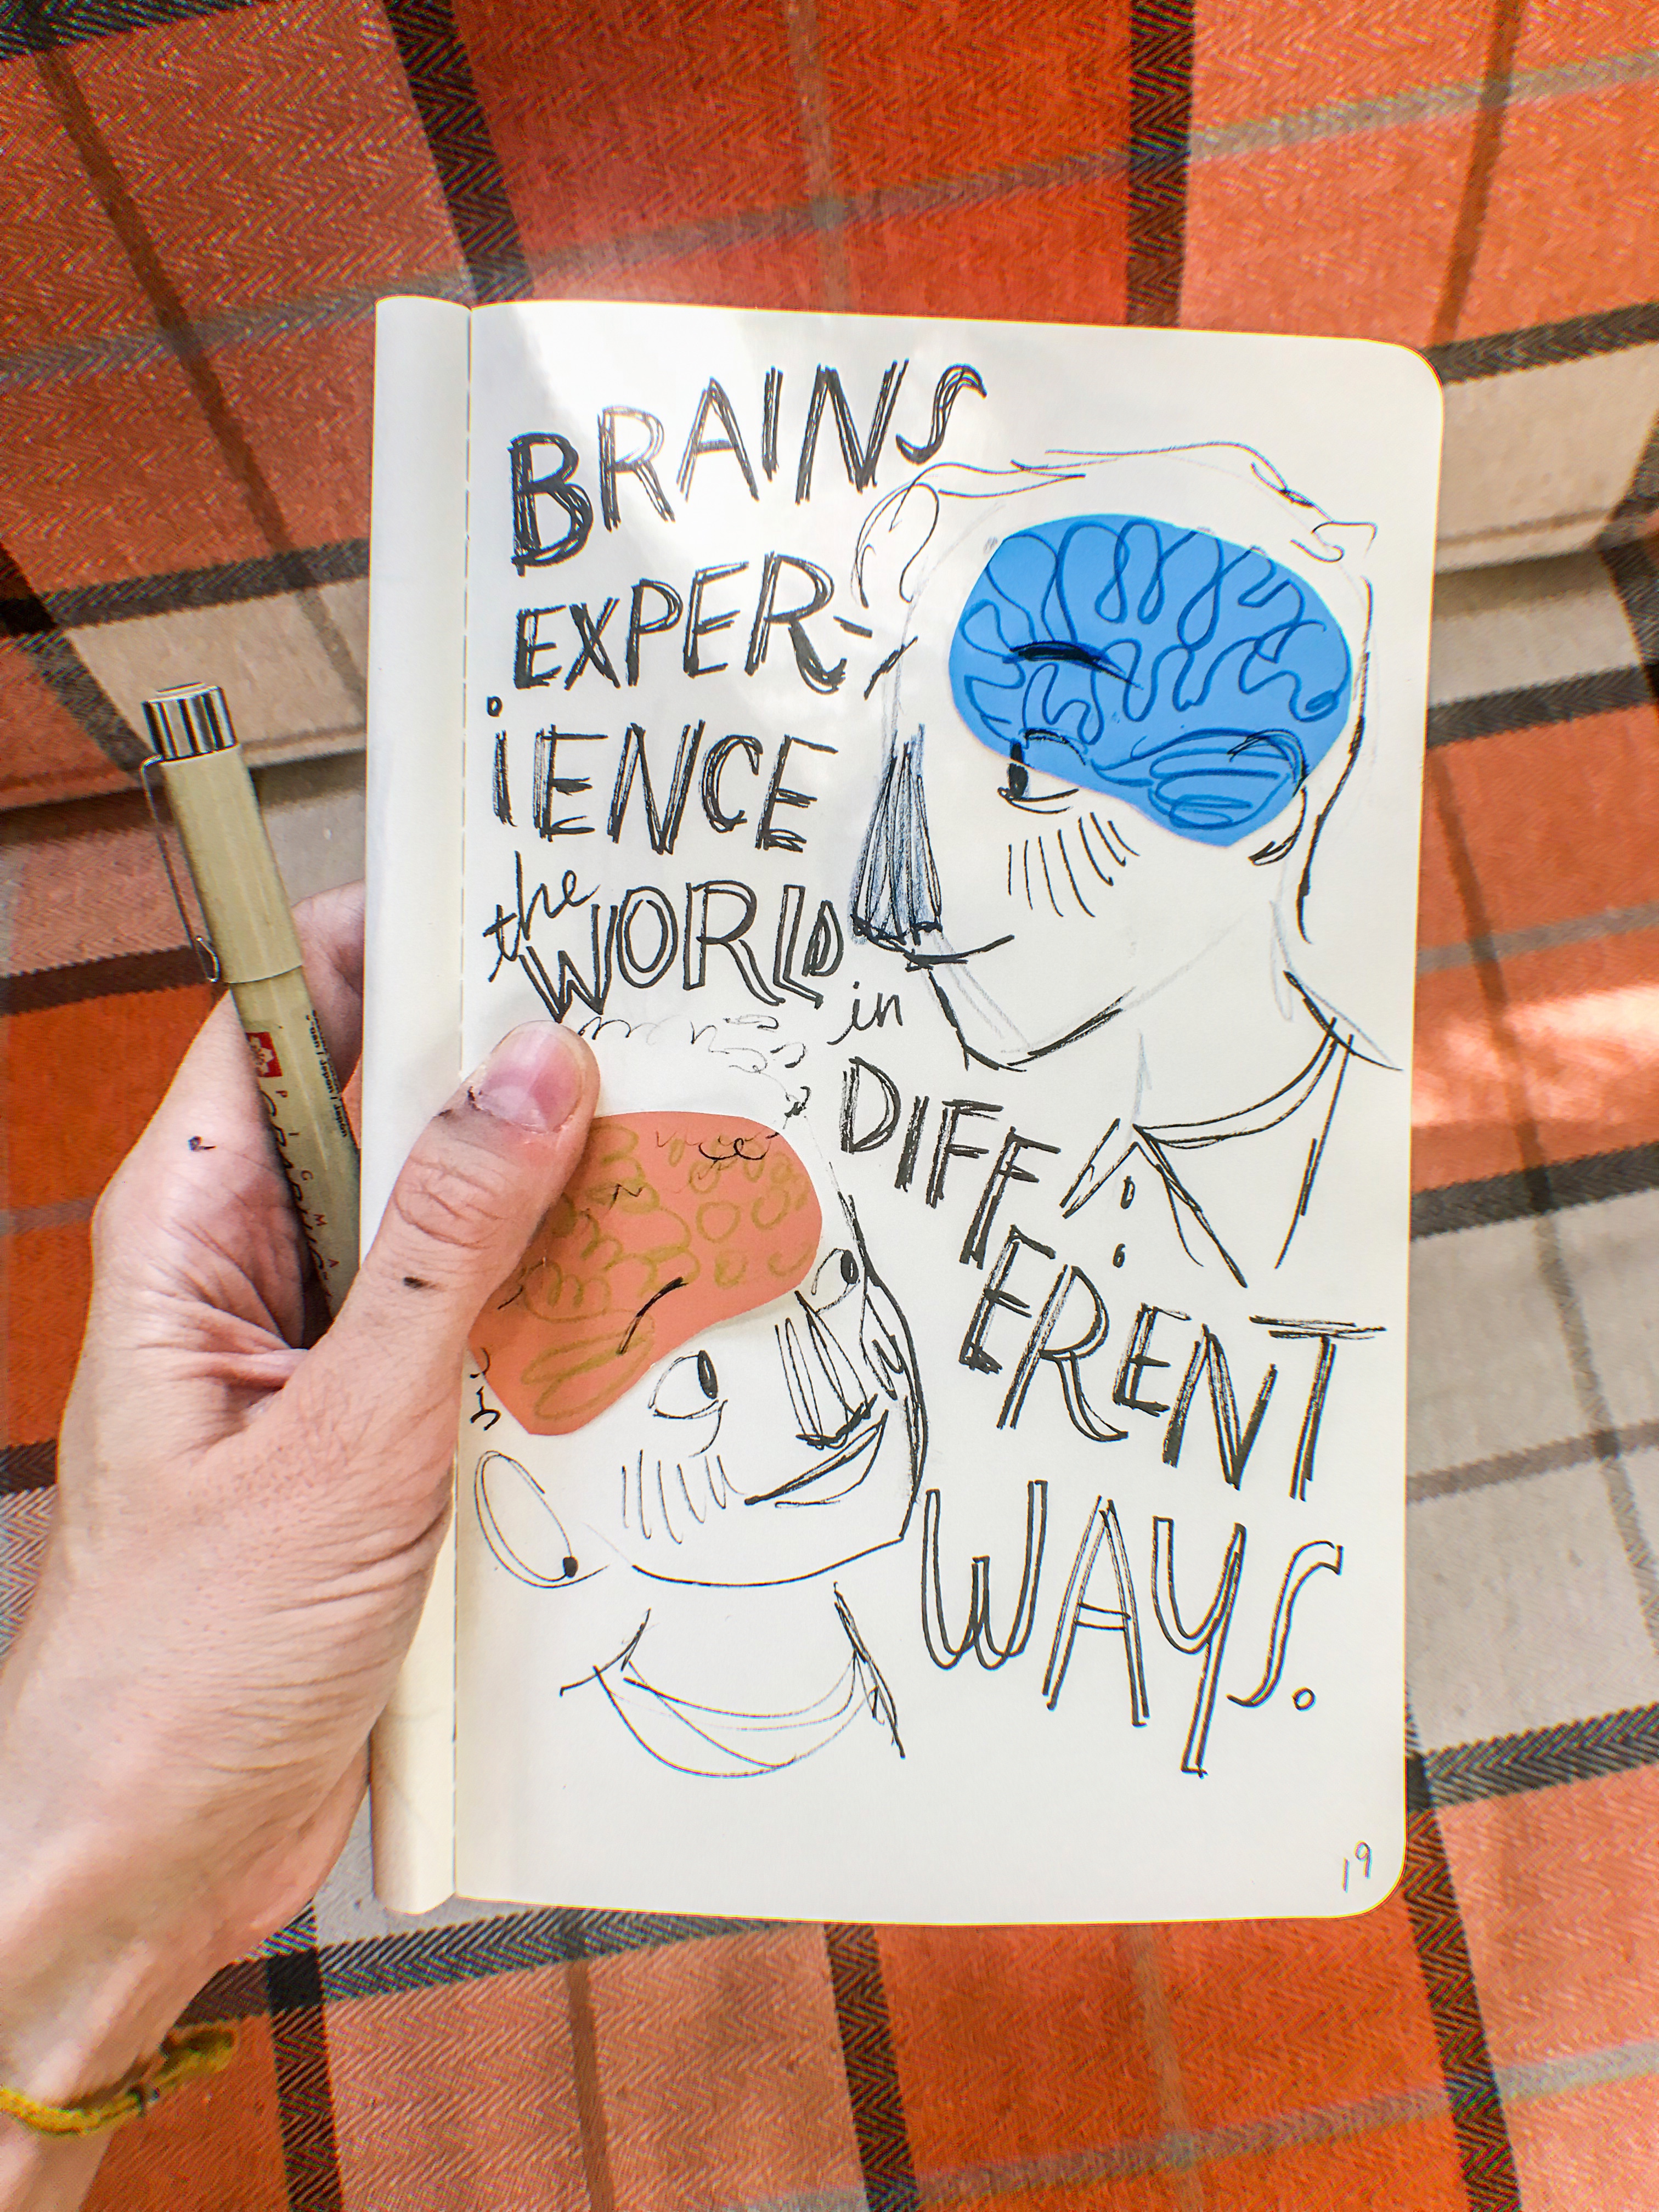 BRAINS
EXPER-
iENCE
the WORLD
in
DIFF-
ERENT
WAYS.
19
PIGMA